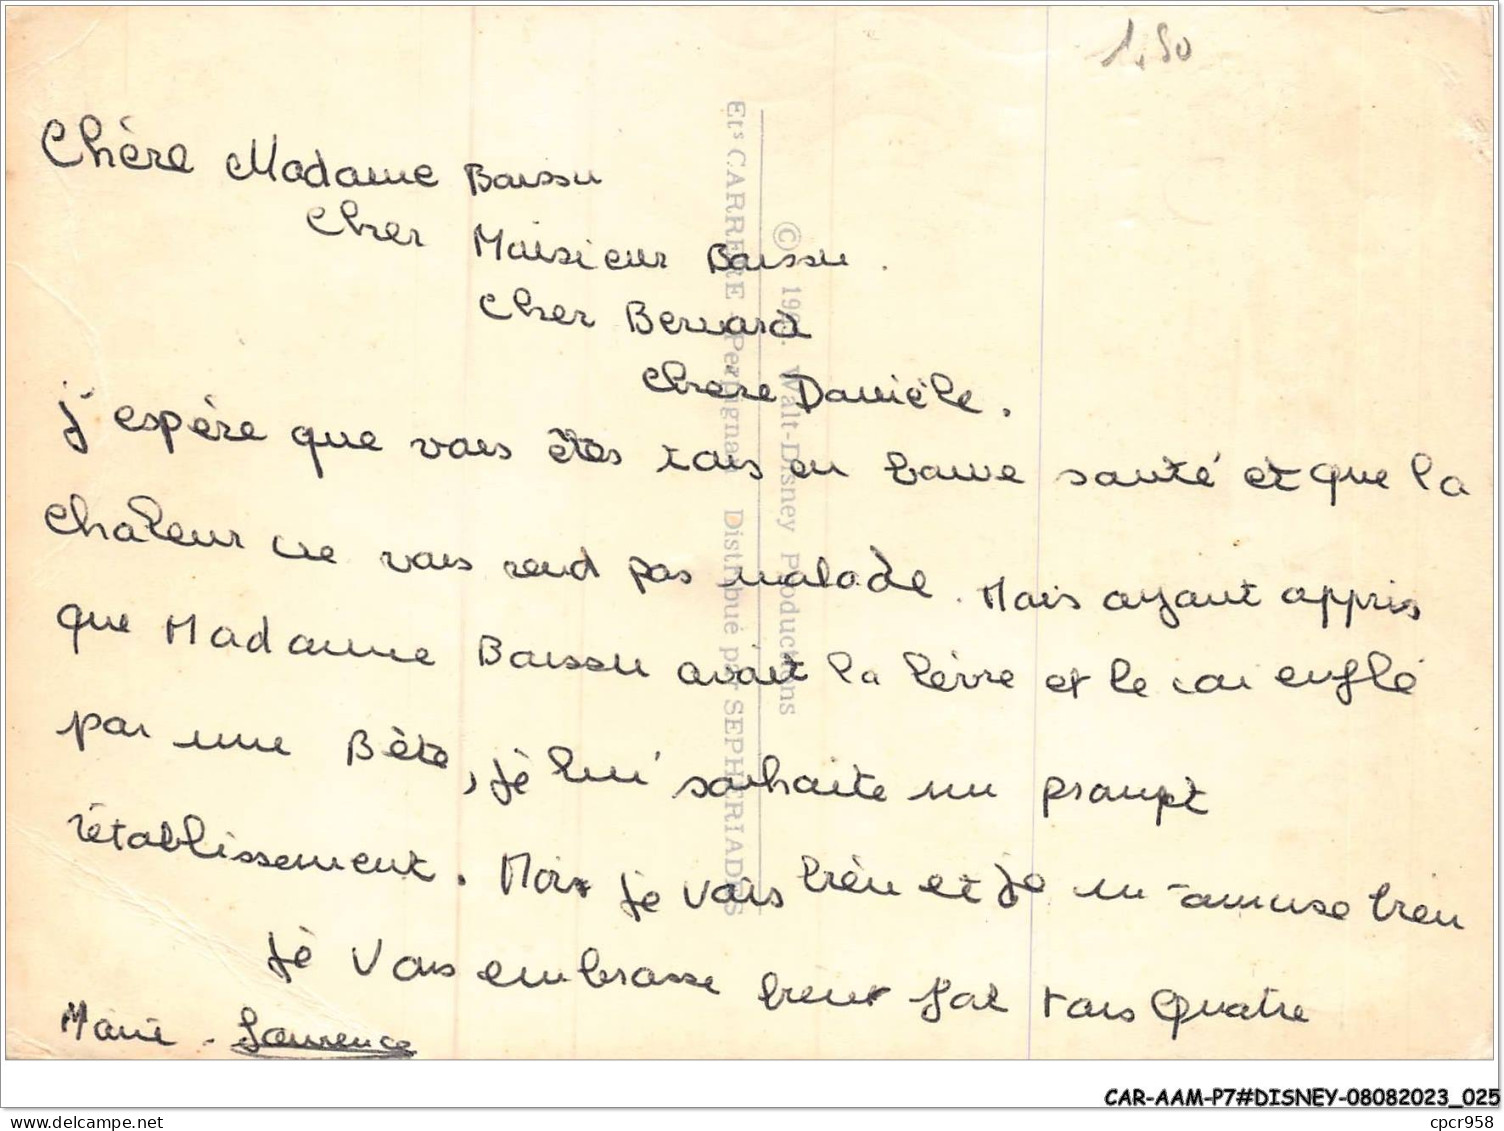 1,50
Chère Madame Boussu
Cher Monsieur Boussu.
Cher Bernard
Chère Danièle.
j'espère que vous êtes tous en bonne santé et que la
chaleur ne vous rend pas malade. Mais ayant appris
que Madame Boussu avait la lèvre et le cou enflé
par une Bête, je lui souhaite un prompt
rétablissement. Moi je vais bien et je m'amuse bien
Je Vous embrasse bien fort tous Quatre
Marie-Laurence
Ets CARRERE Perpignan Distribué par SEPHERIADES
© Walt-Disney Productions
CAR-AAM-P7#DISNEY-08082023_025
www.delcampe.net
cpcr958